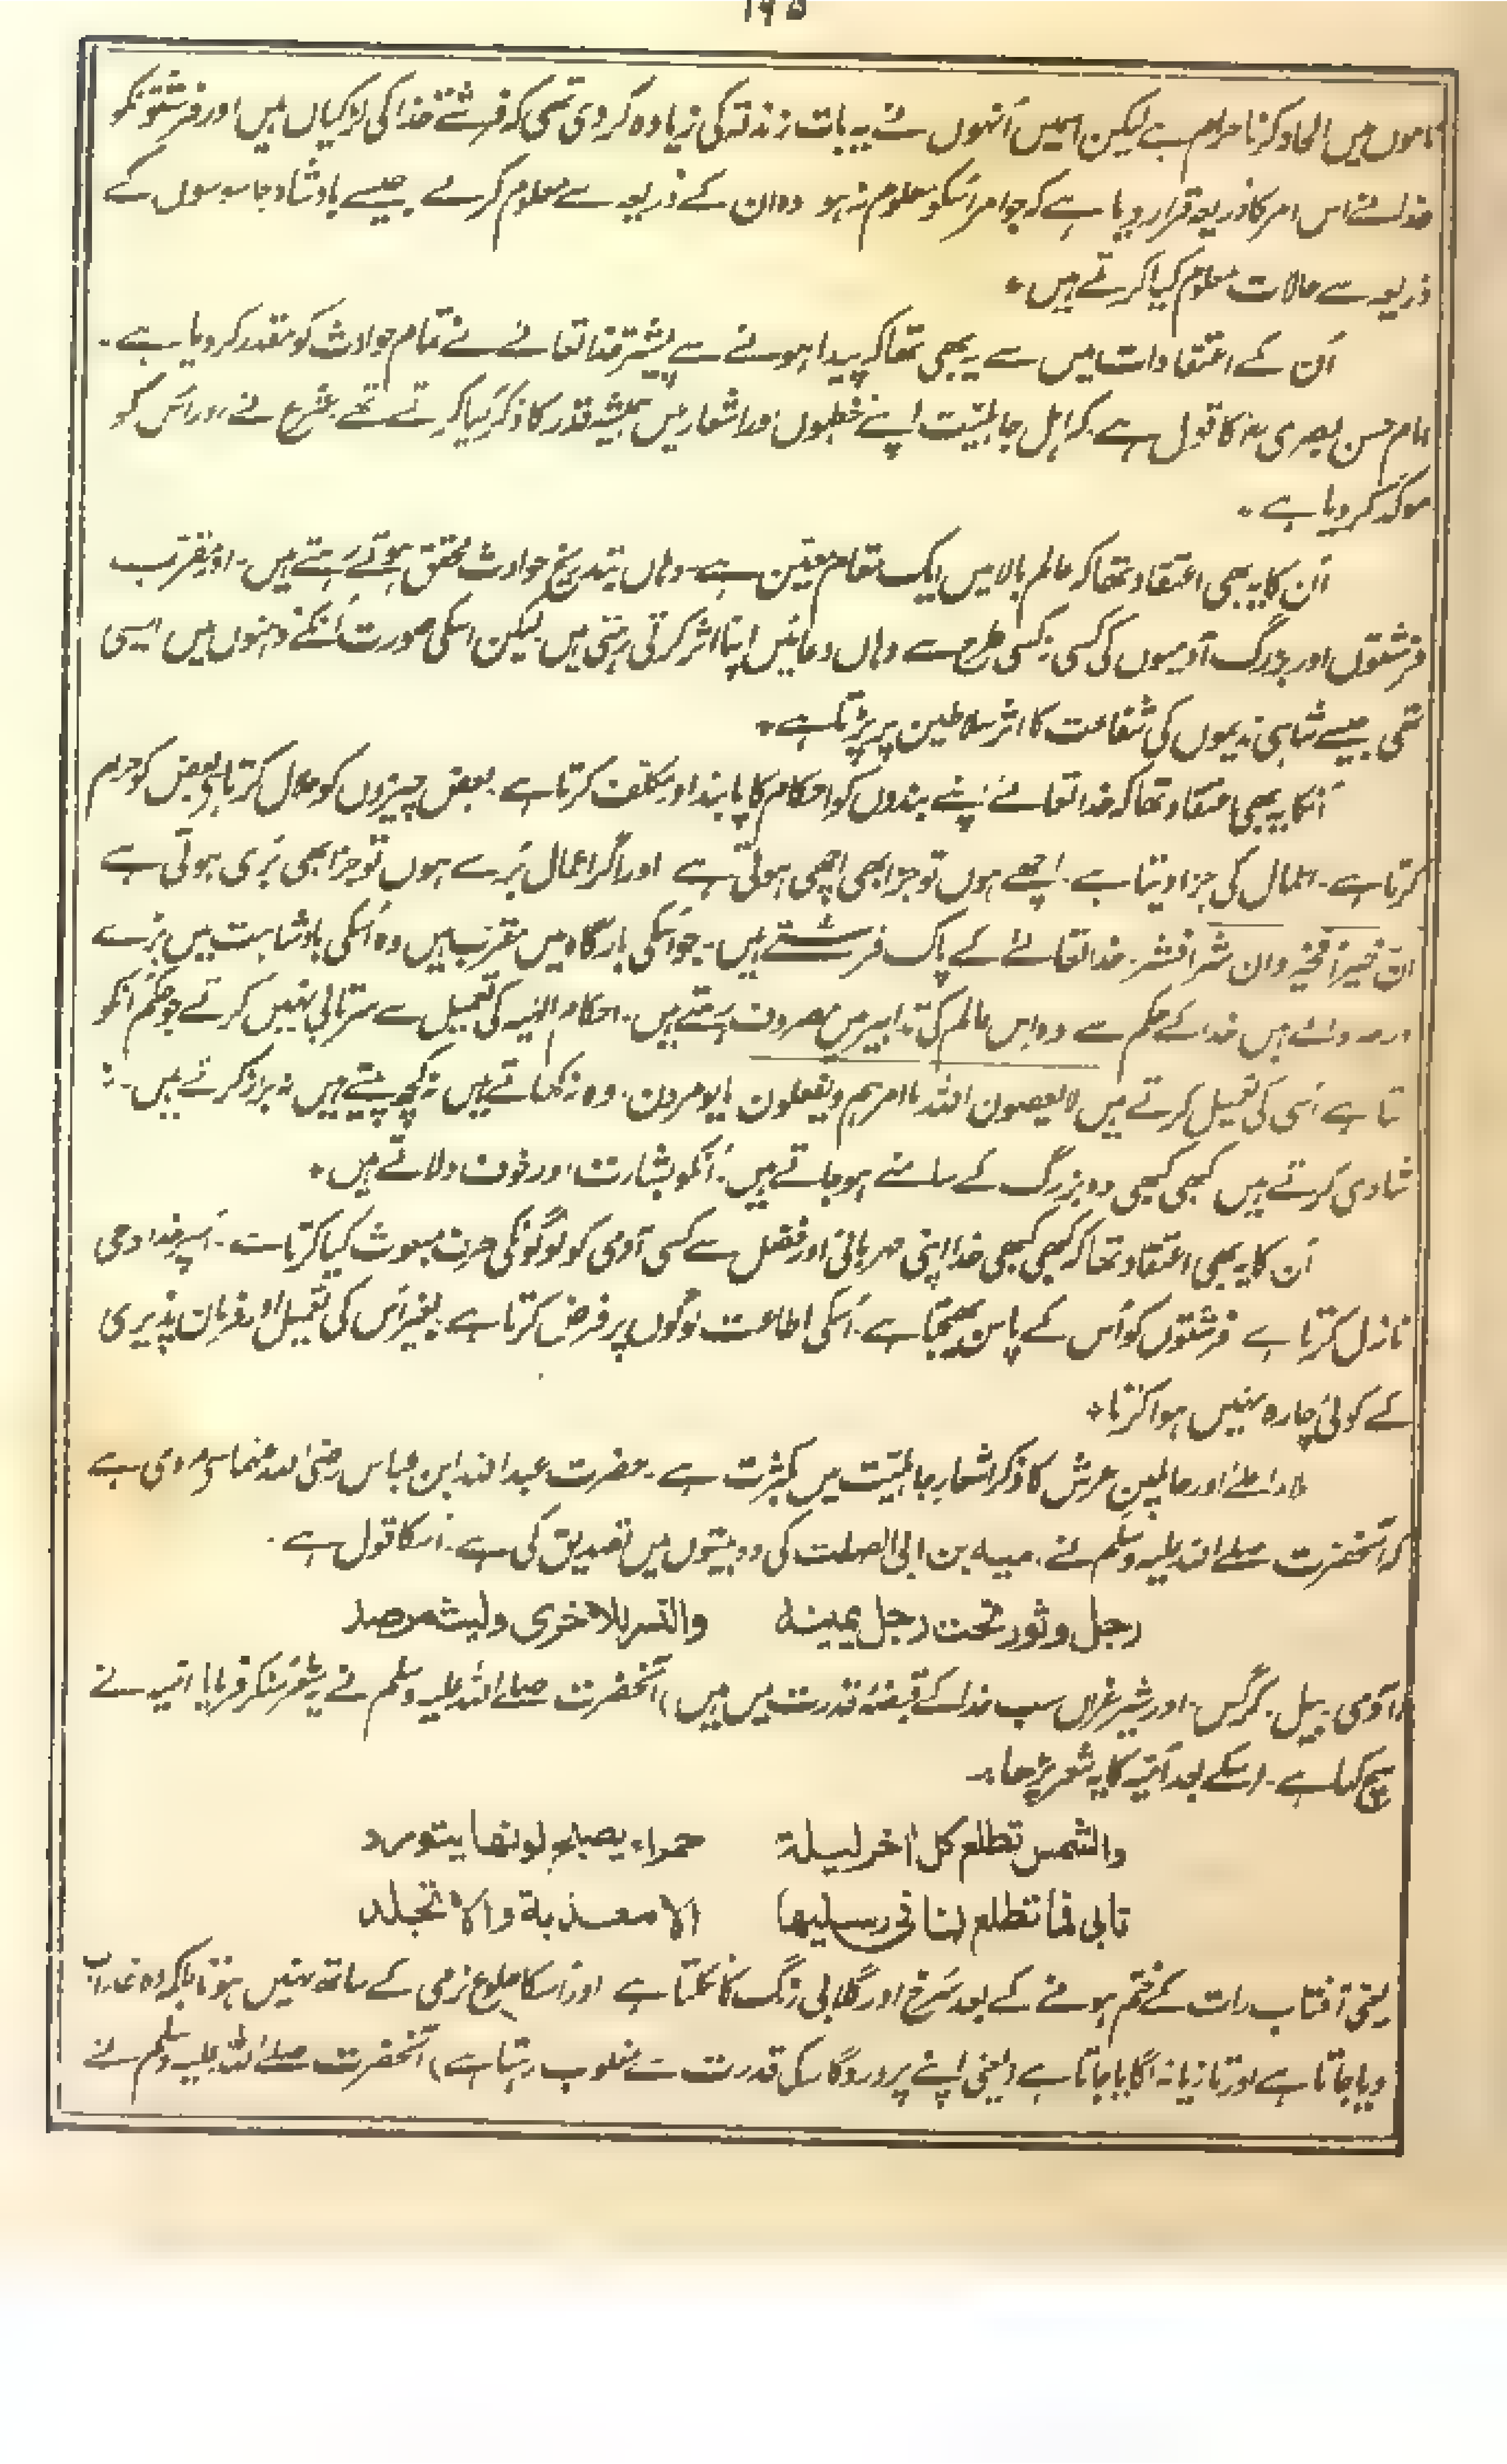 ۱۶۵
ناموں میں الحاد کرنا حرام ہے لیکن اسمیں اُنہوں نے یہ بات زندقہ کی زیادہ کر دی تھی کہ فرشتے خدا کی لڑکیاں ہیں اور فرشتونکو
خدا نے اس امر کا ذریعہ قرار دیا ہے کہ جو امر اُسکو معلوم نہ ہو وہ ان کے ذریعہ سے معلوم کرے جیسے بادشاہ جاسوسوں کے
ذریعہ سے حالات معلوم کیا کرتے ہیں٭
اُن کے اعتقادات میں سے یہ بھی تھا کہ پیدا ہونے سے پیشتر خدا تعالےٰ نے تمام حوادث کو مقدر کر دیا ہے۔
امام حسن بصری رح کا قول ہے کہ اہل جاہلیّت اپنے خطبوں اور اشعار میں ہمیشہ قدر کا ذکر کیا کرتے تھے شرع نے اور اُس کو
موکّد کر دیا ہے٭
اُن کا یہ بھی اعتقاد تھا کہ عالم بالا میں ایک مقام معین ہے۔ وہاں بتدریج حوادث محقق ہوتے رہتے ہیں۔ اور مقرّب
فرشتوں اور بزرگ آدمیوں کی کسی نہ کسی طرح سے وہاں دعائیں اپنا اثر کرتی رہتی ہیں لیکن اسکی صورت اُنکے ذہنوں میں ایسی
تھی جیسے شاہی ندیموں کی شفاعت کا اثر سلاطین پر پڑتا ہے٭
اُنکا یہ بھی اعتقاد تھا کہ خدا تعالےٰ اپنے بندوں کو احکام کا پابند اور مکلّف کرتا ہے۔ بعض چیزوں کو حلال کرتا ہی بعض کو حرام
کرتا ہے۔ اعمال کی جزا دیتا ہے۔ اچھے ہوں تو جزا بھی اچھی ہوتی ہے اور اگر اعمال بُرے ہوں تو جزا بھی بُری ہوتی ہے
ان خیراً فخیر وان شراً فشر۔ خدا تعالےٰ کے پاک فرشتے ہیں۔ جو اُسکی بارگاہ میں مقرّب ہیں وہ اُسکی بادشاہت میں بڑے
درجہ والے ہیں خدا کے حکم سے وہ اس عالم کی تدابیر میں مصروف رہتے ہیں۔ احکام الٰہیہ کی تعمیل سے سرتابی نہیں کرتے جو حکم اُنکو
تا ہے اُسی کی تعمیل کرتے ہیں لا یعصون اللہ ما امرہم ویفعلون ما یومرون۔ وہ نہ کھاتے ہیں نہ کچھ پیتے ہیں نہ براز کرتے ہیں۔ نہ
شادی کرتے ہیں کبھی کبھی وہ بزرگ کے سامنے ہو جاتے ہیں۔ اُنکو بشارت اور خوف دلاتے ہیں٭
اُن کا یہ بھی اعتقاد تھا کہ کبھی کبھی خدا اپنی مہربانی اور فضل سے کسی آدمی کو لوگونکی طرف مبعوث کیا کرتا ہے۔ اُسپر خدا وحی
نازل کرتا ہے فرشتوں کو اُس کے پاس بھیجتا ہے۔ اُسکی اطاعت لوگوں پر فرض کرتا ہے۔ بغیر اُس کی تعمیل اور فرمان پذیری
کے کوئی چارہ نہیں ہوا کرتا٭
ملاء اعلےٰ اور حاملین عرش کا ذکر اشعار جاہلیّت میں بکثرت ہے۔ حضرت عبد اللہ ابن عباس رضی اللہ عنہما سے مروی ہے
کہ آنحضرت صلے اللہ علیہ وسلم نے امیہ بن ابی الصلت کی دو بیتوں میں تصدیق کی ہے۔ اُسکا قول ہے۔
رجل وثور تحت رجل یمینہ والنسر للاخری ولیث مرصد
(آدمی۔ بیل۔ گرگس۔ اور شیر غراں سب خدا کے قبضۂ قدرت میں ہیں) آنحضرت صلے اللہ علیہ وسلم نے یہ شعر سُنکر فرمایا امیہ نے
سچ کہا ہے۔ اسکے بعد اُمیّہ کا یہ شعر پڑھا۔
والشمس تطلع کل آخر لیلة حمراء یصبح لونھا یتورد
تابی فما تطلع لنا فی رسلیھا الا معذبة والا تجلد
یعنی آفتاب رات کے ختم ہونے کے بعد سُرخ اور گلابی رنگ کا نکلتا ہے اور اُسکا طلوع نرمی کے ساتھ نہیں ہوتا بلکہ وہ عذاب
دیا جاتا ہے اور تازیانہ لگایا جاتا ہے (یعنی اپنے پروردگار کی قدرت سے مغلوب رہتا ہے) آنحضرت صلے اللہ علیہ وسلم نے